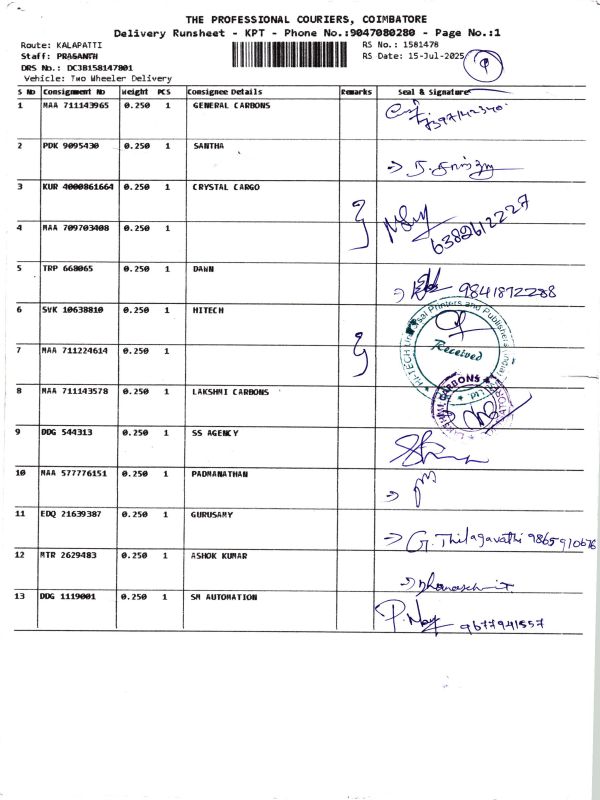 THE PROFESSIONAL COURIERS, COIMBATORE
Delivery Runsheet - KPT - Phone No.:9047080280 - Page No.:1
Route: KALAPATTI RS No.: 1581478
Staff: PRASANTH RS Date: 15-Jul-2025
DRS No.: DC3B158147801
Vehicle: Two Wheeler Delivery
S No Consignment No Weight PCS Consignee Details Remarks Seal & Signature
1 MAA 711143965 0.250 1 GENERAL CARBONS
2 PDK 9095430 0.250 1 SANTHA
3 KUR 4000861664 0.250 1 CRYSTAL CARGO
4 MAA 709703408 0.250 1 6382612227
5 TRP 668065 0.250 1 DAWN 9841872288
6 SVK 10638810 0.250 1 HITECH
HI-TECH Universal Printers and Publishers
Received
7 MAA 711224614 0.250 1
8 MAA 711143578 0.250 1 LAKSHMI CARBONS
LAKSHMI CARBONS
9 DDG 544313 0.250 1 SS AGENCY
10 MAA 577776151 0.250 1 PADMANATHAN
11 EDQ 21639387 0.250 1 GURUSAMY G. Thilagavathi 9865910676
12 MTR 2629483 0.250 1 ASHOK KUMAR
13 DDG 1119001 0.250 1 SM AUTOMATION 9677941557